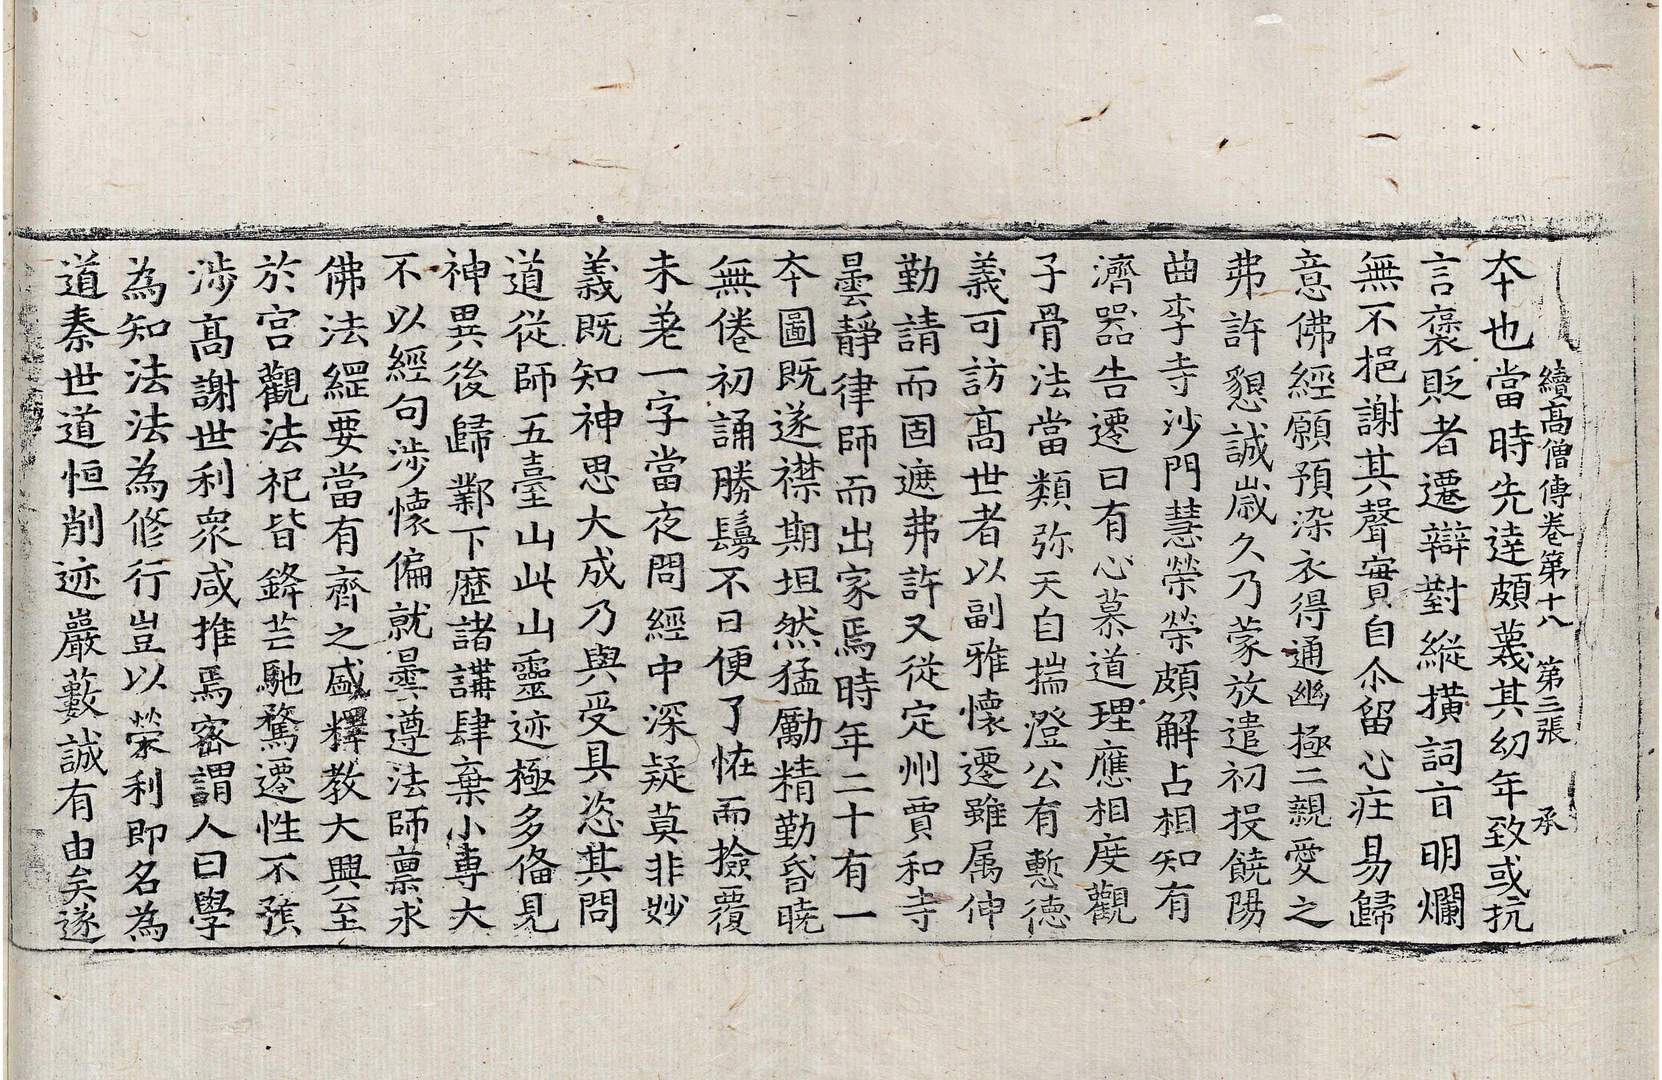 續高僧傳卷第十八　第三張　承
夲也當時先逹頗蔑其幼年致或抗
言襃貶者遷辯對縱撗詞㫖明爛
無不挹謝其聲實自尒留心莊易歸
意佛經願預染衣得通幽極二親愛之
弗許懇誠歲久乃蒙放遣初投饒陽
曲李寺沙門慧榮榮頗解占相知有
濟器告遷曰有心慕道理應相度觀
子骨法當類弥天自揣澄公有慙德
義可訪髙世者以副雅懷遷雖属伸
勤請而固遮弗許又從定州賈和寺
曇靜律師而出家焉時年二十有一
夲圖既遂襟期坦然猛勵精勤昏曉
無倦初誦勝鬘不日便了怪而撿覆
未差一字當夜問經中深疑莫非妙
義既知神思大成乃與受具恣其問
道從師五臺山此山靈迹極多俻見
神異後歸鄴下歷諸講肆棄小專大
不以經句涉懷偏就曇遵法師稟求
佛法綱要當有齊之盛釋教大興至
於宮觀法祀皆鋒芒馳騖遷性不預
涉髙謝世利衆咸推焉密謂人曰學
為知法法為修行豈以榮利即名為
道秦世道恒削迹巖藪誠有由矣遂